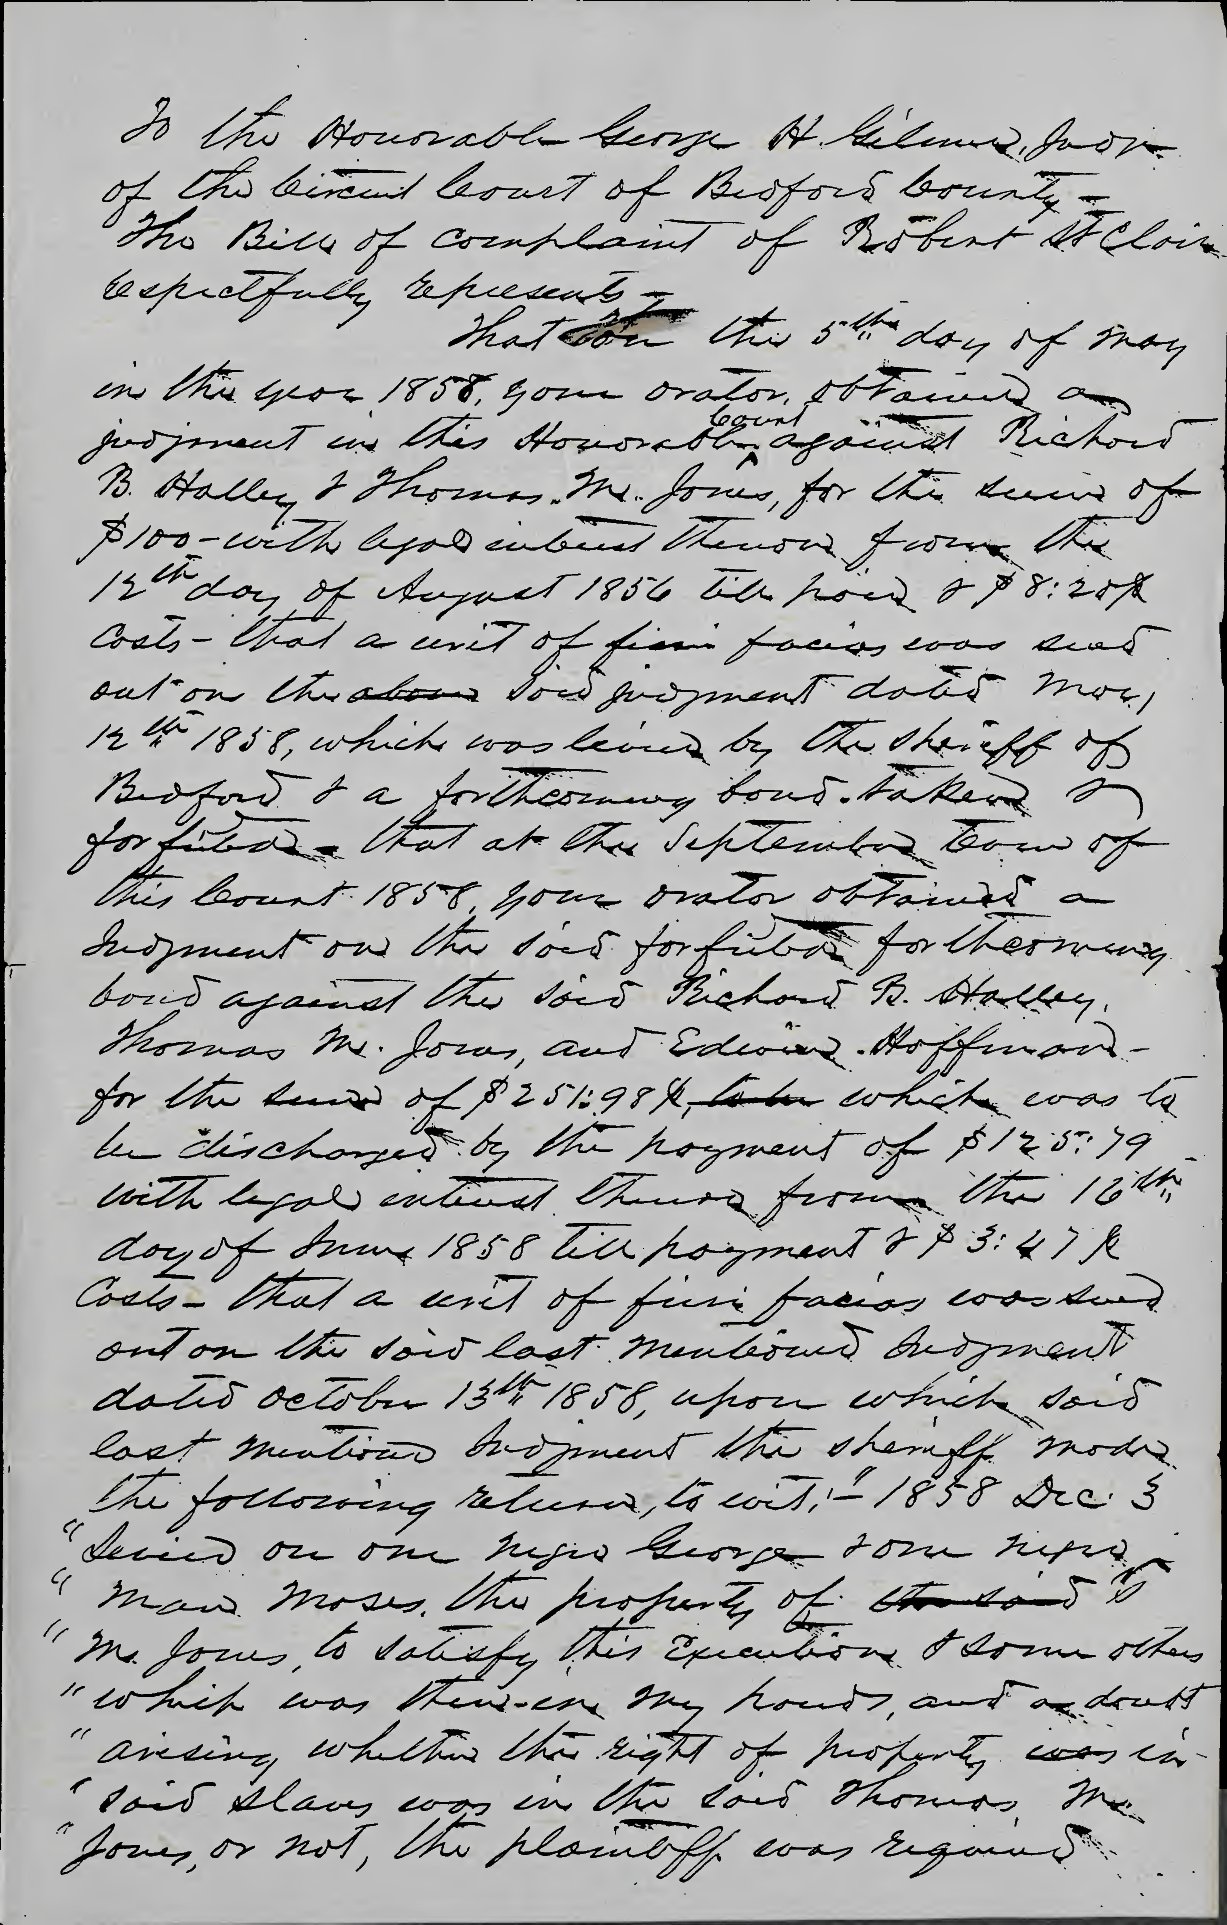 To the Honorable George H. Gilmer, Judge
of the Circuit Court of Bedford County –
The Bill of complaint of Robert St Clair
respectfully represents –
That on the 5th day of May
in the year 1858, your orator, obtained a
judgment in this Honorable Court against Richard
B. Halley & Thomas M. Jones, for the sum of
$100 – with legal interest thereon from the
12th day of August 1856 till paid & $8:20¢
Costs – that a writ of fieri facias was sued
out on the above said judgment dated May,
12th 1858, which was levied by the sheriff of
Bedford & a forthcoming bond taken &
forfeited – that at the September term of
this Court 1858, your orator obtained a
Judgment on the said forfeited forthcoming
bond against the said Richard B. Halley,
Thomas M. Jones, and Edwin Hoffman –
for the sum of $251:98¢, to be which was to
be discharged by the payment of $125:79
with legal interest thereon from the 16th
day of June 1858 till payment & $3:47¢
Costs – that a writ of fieri facias was sued
out on the said last mentioned Judgment
dated October 13th 1858, upon which said
last mentioned Judgment the sheriff made
the following return, to wit: – "1858 Dec. 3
"Levied on one negro George & one negro
"man Moses, the property of the said T
"M. Jones, to satisfy this Execution & some others
"which was then in my hands, and a doubt
"arising whether the right of property was in
"said slaves was in the said Thomas M.
"Jones, or not, the plaintiff was required